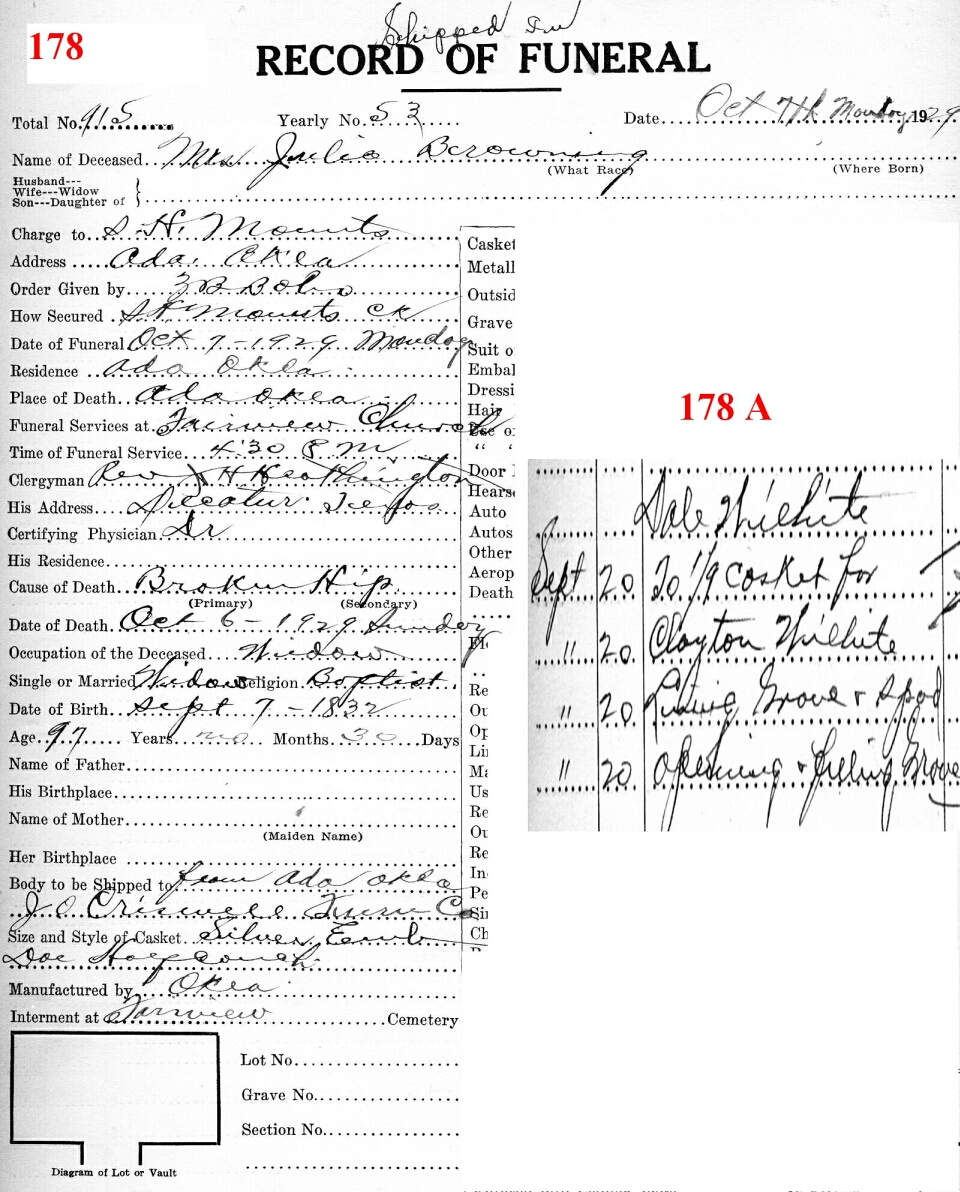 178
Shipped In
RECORD OF FUNERAL
Total No. 915 Yearly No. 53 Date Oct 7th Monday 1929
Name of Deceased Mrs Julia Browning
(What Race) (Where Born)
Husband---
Wife---Widow
Son---Daughter of
Charge to S. H. Mounts
Address Ada, Okla
Order Given by
How Secured S H Mounts CK
Date of Funeral Oct 7-1929 Monday
Residence Ada Okla
Place of Death Ada Okla
Funeral Services at Fairview Church
Time of Funeral Service 4:30 P M
Clergyman Rev H Heathington
His Address Decatur Texas
Certifying Physician Dr
His Residence
Cause of Death Broken Hip
(Primary) (Secondary)
Date of Death Oct 6-1929 Sunday
Occupation of the Deceased Widow
Single or Married Widow Religion Baptist
Date of Birth Sept 7-1832
Age 97 Years no Months 30 Days
Name of Father
His Birthplace
Name of Mother
(Maiden Name)
Her Birthplace
Body to be Shipped to from Ada Okla
J. O. Criswell Furn Co
Size and Style of Casket Silver Emb
Doe
Manufactured by Okla
Interment at Fairview Cemetery
Lot No.
Grave No.
Section No.
Diagram of Lot or Vault
Casket
Metall
Outsid
Grave
Suit o
Embal
Dressi
Hair
Use o
“ “
Door
Hearse
Auto
Autos
Other
Aerop
Death
Flo
Re
Ou
Op
Lin
Ma
Us
Re
Ou
Re
In
Pe
Sin
Ch
178 A
Dale Wilhite
Sept 20 To 1/9 casket for
" 20 Clayton Wilhite
" 20 Lining Grave + Spod
" 20 Opening + Filling Grave